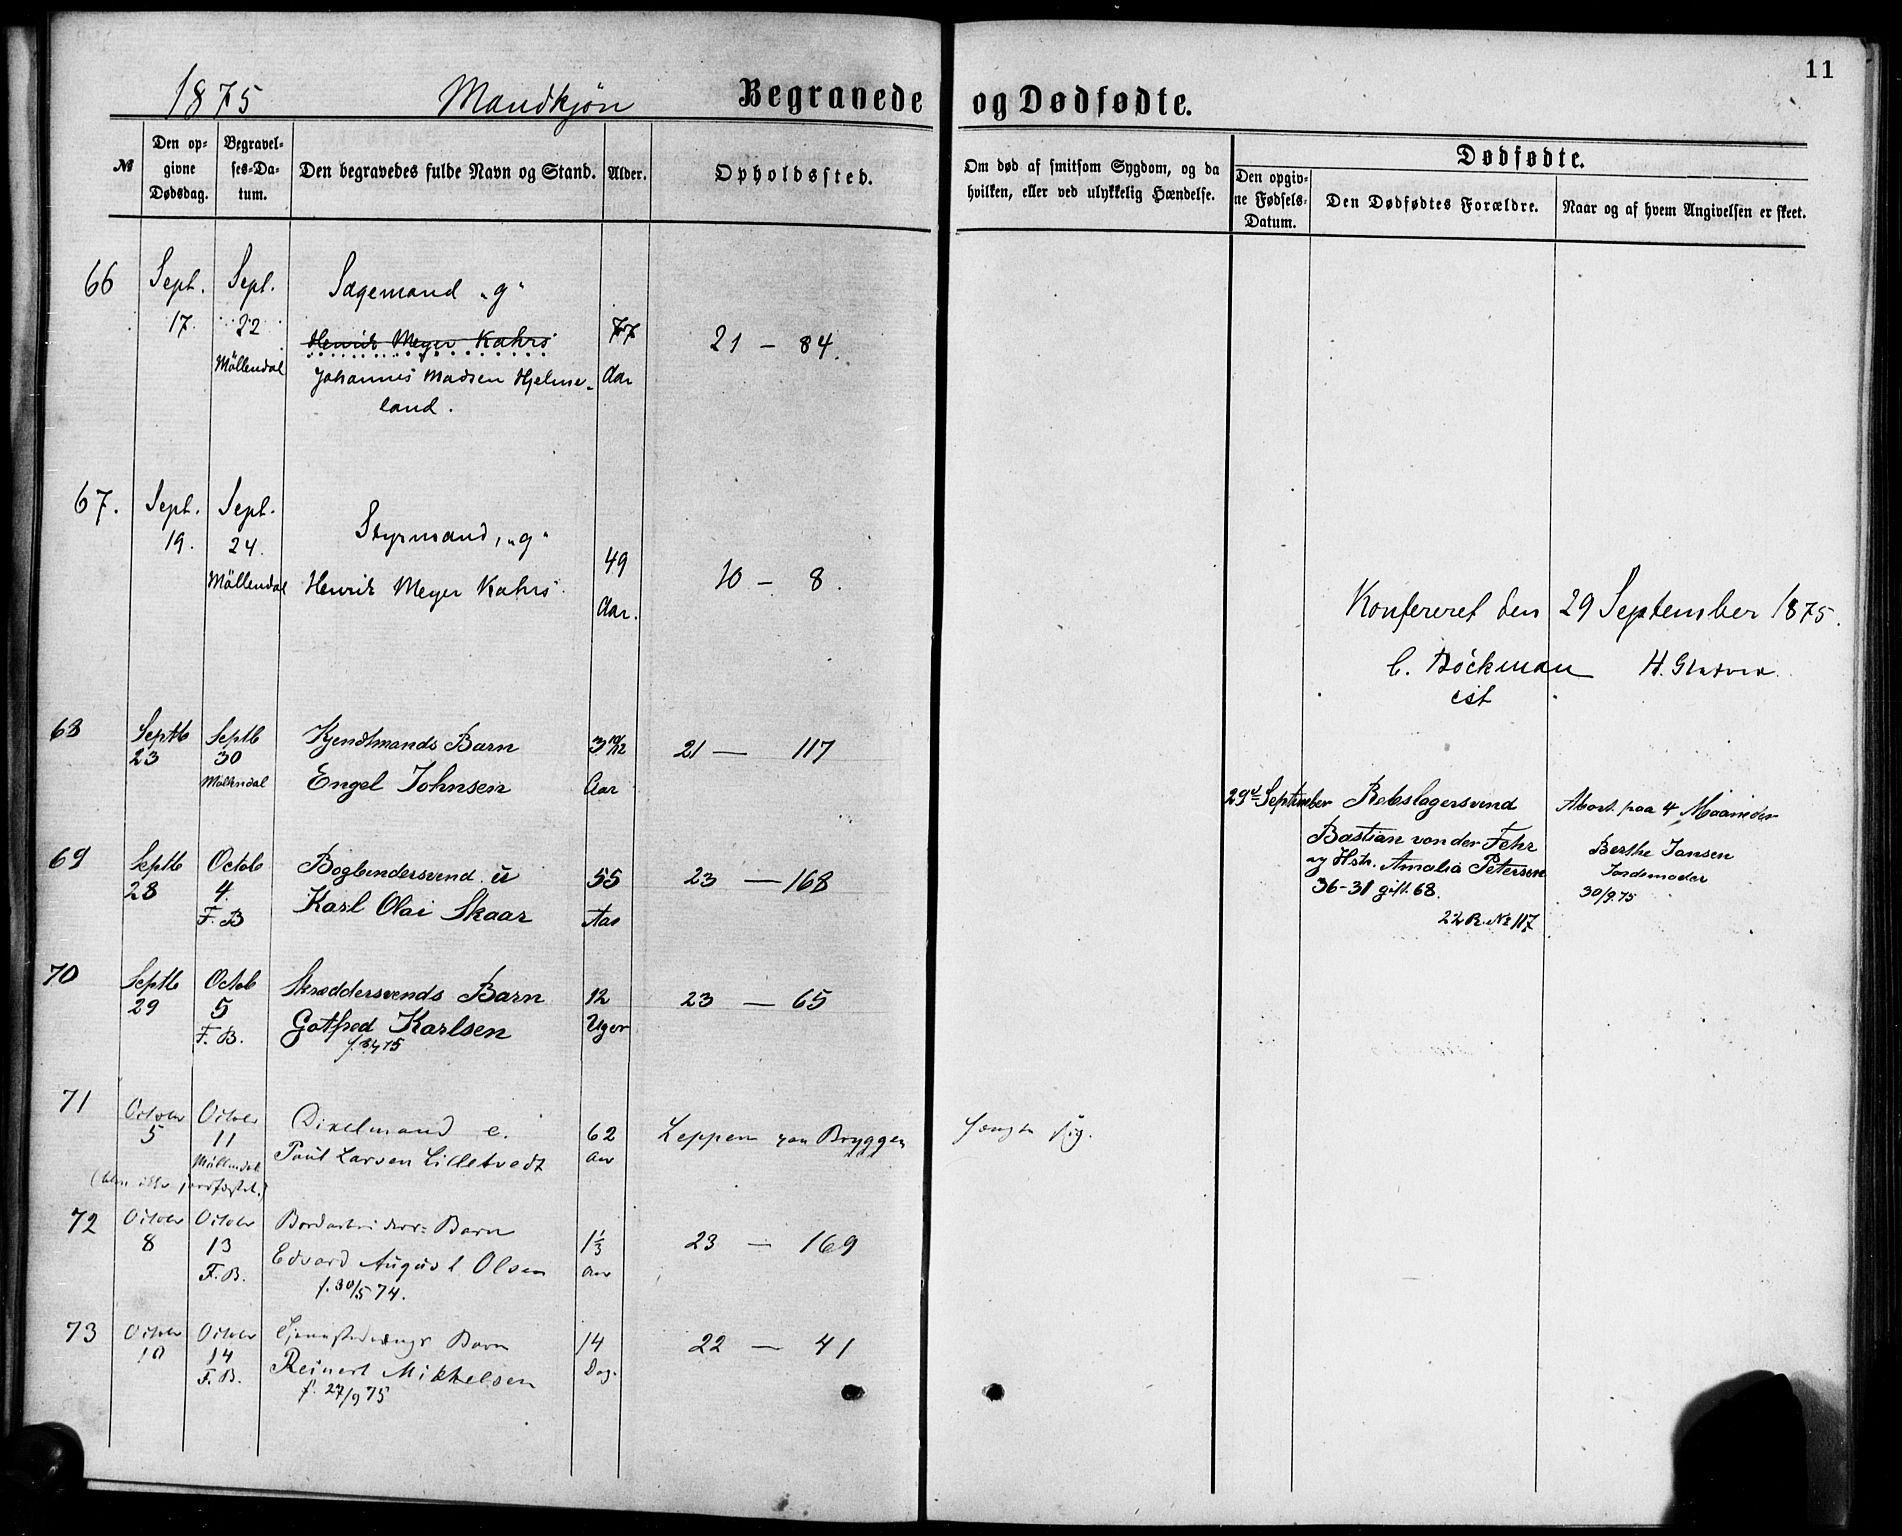 11
1875 Mandkjön Begravede og Dødfødte.
№
Den opgivne Dødsdag.
Begravelses-Datum.
Den begravedes fulde Navn og Stand.
Alder.
Opholdssted.
Om død af smitsom Sygdom, og da hvilken, eller ved ulykkelig Hændelse.
Dødfødte.
Den opgivne Fødsels-Datum.
Den Dødfødtes Forældre.
Naar og af hvem Angivelsen er skeet.
66 Sept. Sept. Sagemand „g"
17. 22 Henrik Meyer Kahrs 77 21 – 84.
Möllendal Johannes Madsen Hjelme- Aar
land.
67. Sept. Sept.
19. 24. Styrmand, „g" 49
Möllendal Henrik Meyer Kahrs 10 – 8.
Aar.
Konfereret den 29 September 1875.
C. Böckman H.
cst
68 Septb Septb Kjendtmands Barn 3 10/12 21 — 117
23 30
Möllendal Engel Johnsen Aar
29d September Rebslagersvend Abort paa 4 Maaneder
Bastian von der Fehr Berthe Jansen
og Hstr. Amalia Petersen Jordemoder
36-31 gift 68. 30/9.75
22 R. № 117
69 Septb Octob Bogbindersvend u 55 23 — 168
28 4.
F. B Karl Olai Skaar Aar
70 Septb Octob Skræddersvends Barn 12 23 — 65
29 5
F. B. Gotfred Karlsen Uger
71 October October Dixelmand e. 62 Leppen paa Bryggen hængte sig.
5 11
Möllendal Paul Larsen Lilletvedt Aar
(blev ikke jordfæstet.)
72 October October Bordarbeiders Barn 1 1/3 23 — 169
8 13
F. B. Edvard August Olsen Aar
f. 30/5 74.
73 October October Barn 14 22 — 41
10 14
F. B. Reinert Mikkelsen Dag.
f. 27/9 75